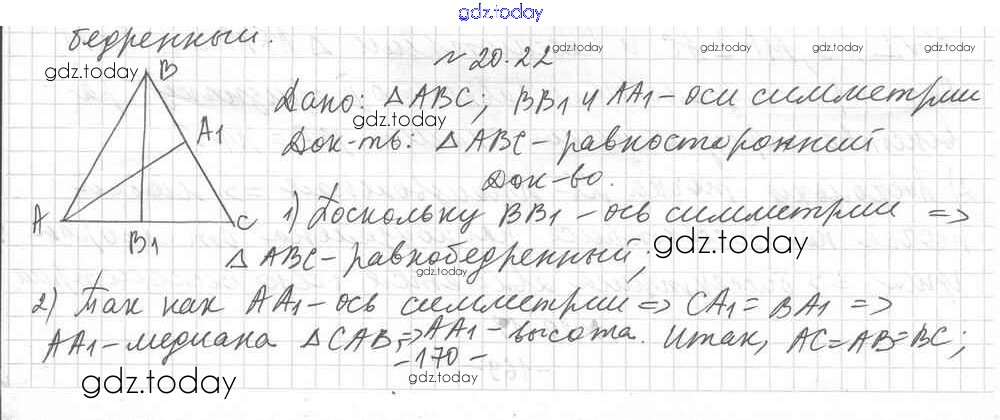 gdz.today
бедренный.
№ 20.22
gdz.today
gdz.today
gdz.today
gdz.today
B
Дано: △ABC; BB1 и AA1 – оси симметрии
gdz.today
A1
Док-ть: △ABC – равносторонний
Док-во.
A
B1
C
1) Поскольку BB1 – ось симметрии =>
gdz.today
△ABC – равнобедренный;
gdz.today
2) Так как AA1 – ось симметрии => CA1 = BA1 =>
AA1 – медиана △CAB, => AA1 – высота. Итак, AC = AB = BC,
– 170 –
gdz.today
gdz.today
gdz.today